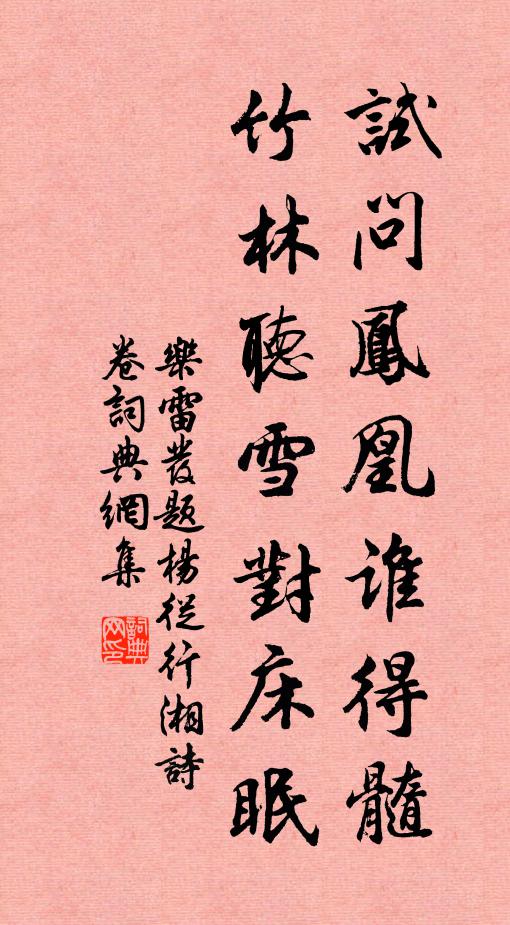 試問鳳凰誰得髓
竹林聽雪對床眠
樂雷發題楊從行湘詩
卷詞典網集
詞典
网印